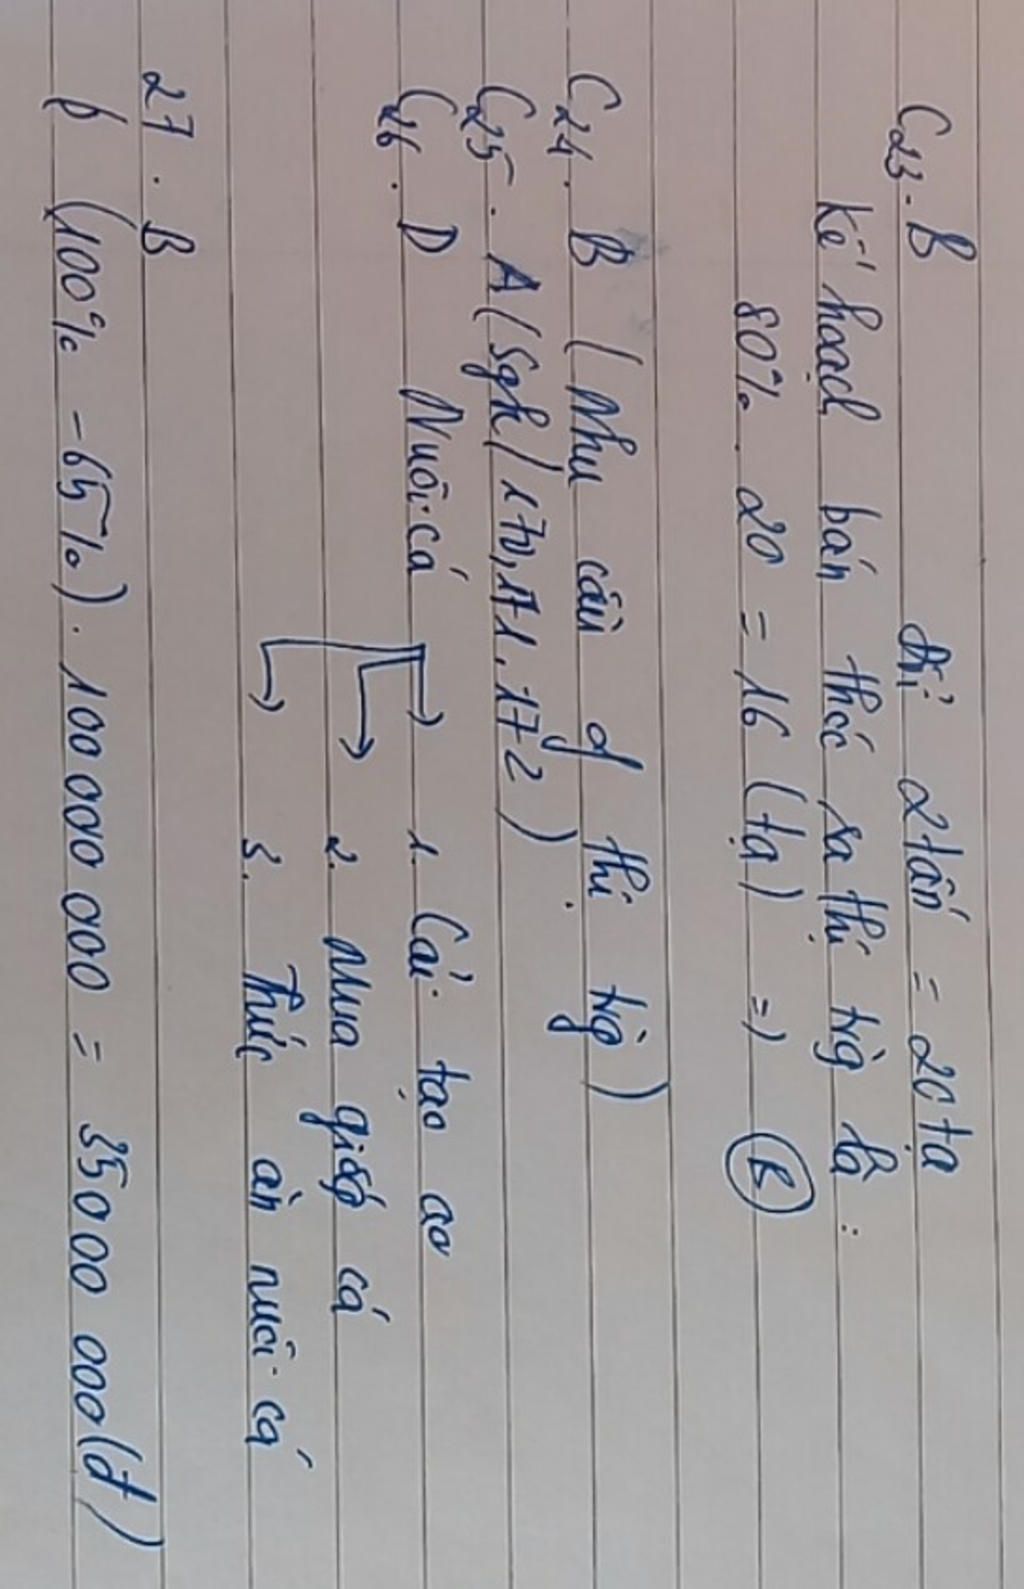 C23. B
Đổi 2 tấn = 20 tạ
Kế hoạch bán thóc ra thị trg là :
80%. 20 = 16 (tạ) => (B)
C24. B (Nhu cầu of thị trg)
C25. A (Sgk/170,171,172)
C26. D Nuôi cá → 1. Cải tạo ao
→ 2. Mua giống cá
→ 3. Thức ăn nuôi cá
27. B
(100% - 65%). 100 000 000 = 35 000 000 (đ)